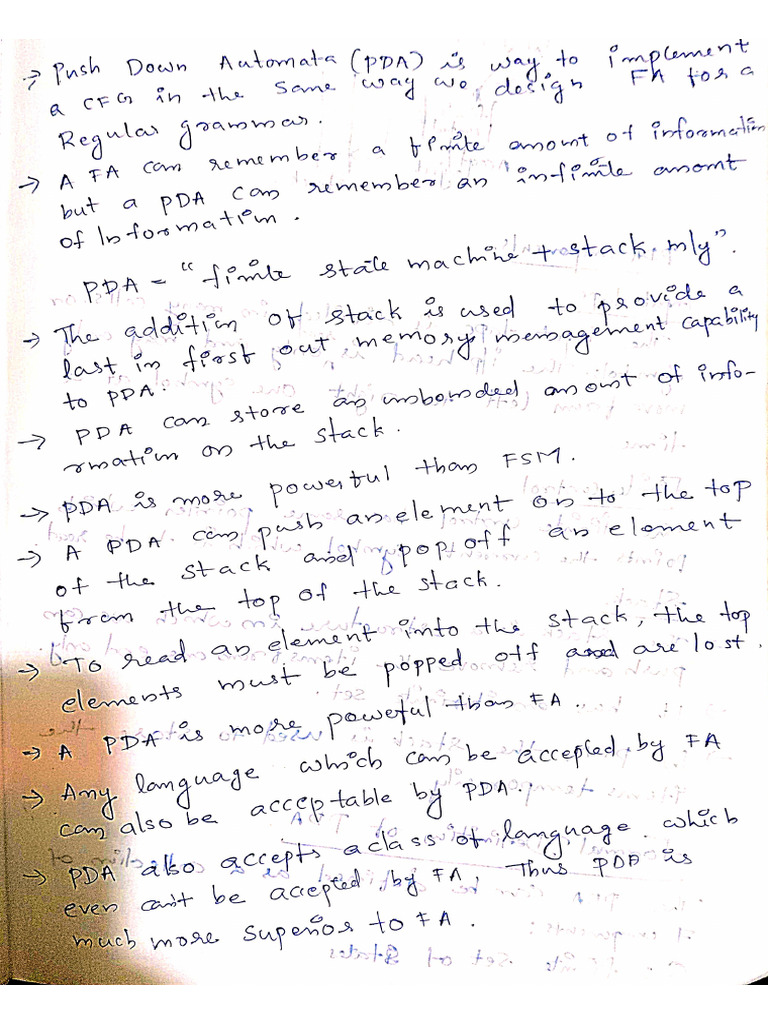 → Push Down Automata (PDA) is way to implement
a CFG in the same way we design FA for a
Regular grammar.
→ A FA can remember a finite amont of information
but a PDA can remember an infinite amont
of Information.
PDA = "finite state machine + stack mly".
→ The addition of stack is used to provide a
last in first out memory management capability
to PDA.
→ PDA can store an unbounded amount of info-
rmation on the stack.
→ PDA is more powerful than FSM.
→ A PDA can push an element on to the top
of the stack and pop off an element
from the top of the stack.
→ To read an element into the stack, the top
elements must be popped off and are lost.
→ A PDA is more poweful than FA.
→ Any language which can be accepted by FA
can also be acceptable by PDA.
→ PDA also accepts a class of language which
even can't be accepted by FA, Thus PDA is
much more superior to FA.